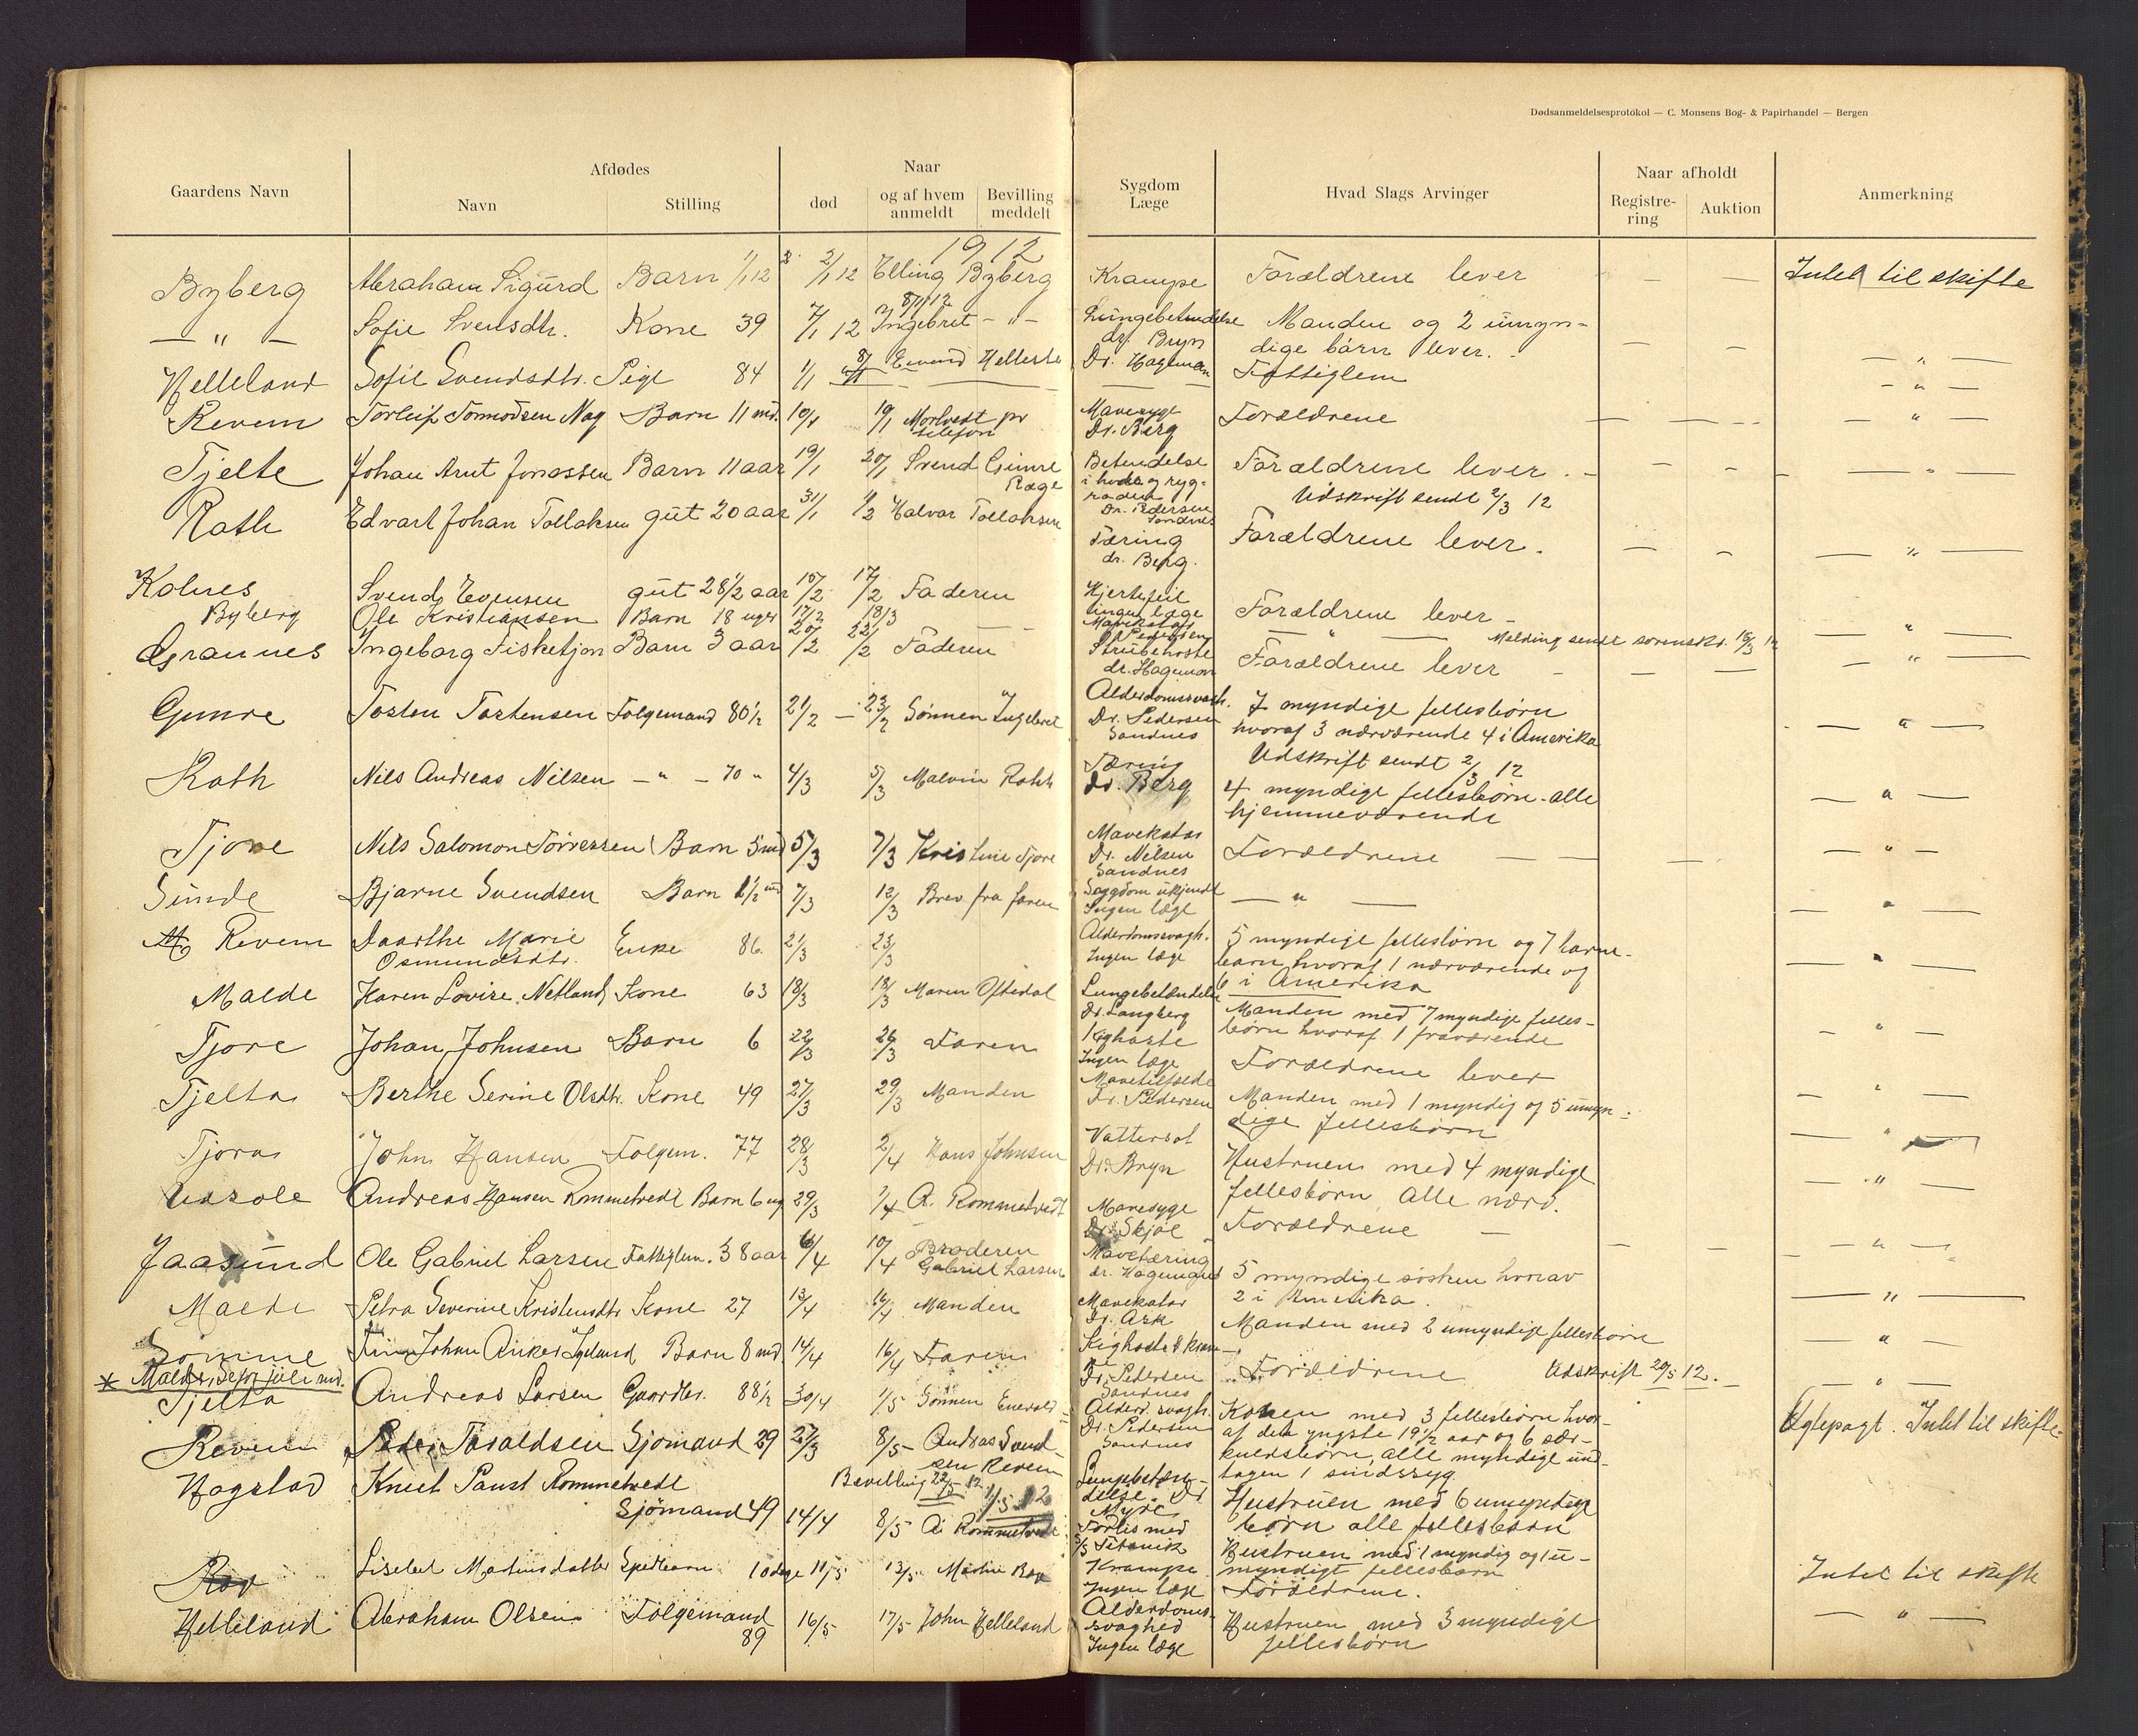 Dødsanmeldelsesprotokol — C. Monsens Bog- & Papirhandel — Bergen
Gaardens Navn Afdødes Naar Sygdom Læge Hvad Slags Arvinger Naar afholdt Anmerkning
Navn Stilling død og af hvem anmeldt Bevilling meddelt Registrering Auktion
1912
Byberg Abraham Sigurd Barn 1/1 12 2/1 12 Elling Byberg Krampe Forældrene lever — — Intet til skifte
— " — Sofie Svensdtr. Kone 39 7/1 12 8/1 12 Ingebret — " — Lungebetendelse dr. Bryn Manden og 2 umyn-
dige børn lever. — — — " —
Helleland Sofie Svendsdtr. Pige 84 1/1 8/1 Dr. Hageman Fattiglem — " —
Revem Torleif Tormodsen Nag Barn 11 md. 10/1 19/1 pr telefon Mavesyge Dr. Berg Forældrene — — — " —
Tjelte Johan Arnt Jonassen Barn 11 aar 19/1 20/1 Svend Gimre Ræge Betendelse
i hode og ryg-
raden
Dr. Pedersen
Sandnes
Forældrene lever. — — — — " —
Udskrift sendt 2/3 12
Roth Edvart Johan Tollaksen gut 20 aar 31/1 1/2 Halvor Tollaksen Tæring
dr. Berg.
Forældrene lever. — — — " —
Kolnes Svend Evensen gut 28 1/2 aar 15/2 17/2 Faderen Hjertefeil
ingen læge
Forældrene lever — — " —
Byberg Ole Kristiansen Barn 18 uger 17/2 18/3 — Mavekatar — " — Melding sendt sorenskr. 15/3 12
Grannes Ingeborg Fisketjon Barn 3 aar 20/2 22/2 Faderen Strubehoste
dr. Hageman
Forældrene lever — — — — " —
Gimre Tosten Tostensen Folgemand 80 1/2 21/2 — 23/2 Sønnen Ingebret Alderdomssvagh.
Dr. Pedersen
Sandnes
7 myndige fellesbørn
hvoraf 3 nærværende 4 i Amerika
Udskrift sendt 2/3 12
— " —
Roth Nils Andreas Nilsen — " — 70 " 4/3 5/3 Malvin Roth Tæring
Dr. Berg
4 myndige fellesbørn - alle
hjemmeværende
— " —
Tjore Nils Salomon Torresen Barn 5 md 5/3 7/3 Kristine Tjore Mavekatar
Dr. Nilsen
Sandnes
Forældrene — — — " —
Sunde Bjarne Svendsen Barn 1 1/2 md 7/3 12/3 Brev fra faren Sygdom ukjendt
Ingen læge
— " — — " —
Revem Daarthe Marie
Osmundsdtr.
Enke 86 21/3 23/3 Alderdomssvagh.
Ingen læge
5 myndige fellesbørn og 7 barne-
barn hvoraf 1 nærværende og
6 i Amerika
— " —
Malde Karen Lovise Netland Kone 63 18/3 18/3 Maren Oftedal Lungebetændelse
Dr. Langberg
Manden med 7 myndige felles-
børn hvoraf 1 fraværende
— " —
Tjore Johan Johnsen Barn 6 22/3 26/3 Faren Kighoste
Ingen læge
Forældrene lever — " —
Tjelta Berthe Serine Olsdtr. Kone 49 27/3 29/3 Manden Mavetilfælde
Dr. Pedersen
Manden med 1 myndig og 5 umyn-
dige fellesbørn
— " —
Tjora John Hansen Folgem. 77 28/3 2/4 Hans Johnsen Vattersot
Dr. Bryn
Hustruen med 4 myndige
fellesbørn, alle nærv.
— " —
Andreas Hansen Rommetvedt Barn 6 ug 29/3 1/4 A. Rommetvedt Mavesyge
Dr. Skjøl
Forældrene — — — — " —
Jaasund Ole Gabriel Larsen Fattiglem. 38 aar 6/4 10/4 Broderen
Gabriel Larsen
Mavetæring
5 myndige søsken hvorav
2 i Amerika.
— " —
Malde Petra Severine Kristensdtr Kone 27 13/4 16/4 Manden Mavekatar
Dr. Ask
Manden med 2 umyndige fellesbørn — " —
Sømme Johan Anker Barn 8 md. 14/4 16/4 Faren Kighoste &
Dr. Pedersen
Sandnes
Forældrene Udskrift 20/5 12. — " —
Tjelta Andreas Larsen Gaardbr. 88 1/2 30/4 1/5 Sønnen Alderd. svagh.
Dr. Pedersen
Sandnes
Konen med 3 fellesbørn hvor-
af den yngste 19 1/2 aar og 6 sær-
kuldsbørn, alle myndige und-
tagen 1 sindssyg.
Egtepagt. Intet til skifte
Revem Peder Taraldsen Sjømand 29 27/3 8/5 Andras Svend-
sen Revem
Bevilling 22/5 12
Lungebetæn-
delse. Dr.
Myre
Hustruen med 6 umyndige
børn alle fellesbørn
Hogstad Knut Paust Rommetvedt
Sjømand 49 14/4 8/5 A. Rommetvedt
Forlis med
Titanik
Hustruen med 1 myndig og 1 u-
myndigt fellesbarn
Røv Lisebet Martinsdatter Spedbarn 10 dage 11/5 13/5 Martin Røv Krampe
Ingen læge
Forældrene. Intet til skifte
Helleland Abraham Olsen Folgemand
89
16/5 17/5 John Helleland Alderdoms-
svaghed
Ingen læge
Hustruen med 3 myndige
fellesbørn
— " —